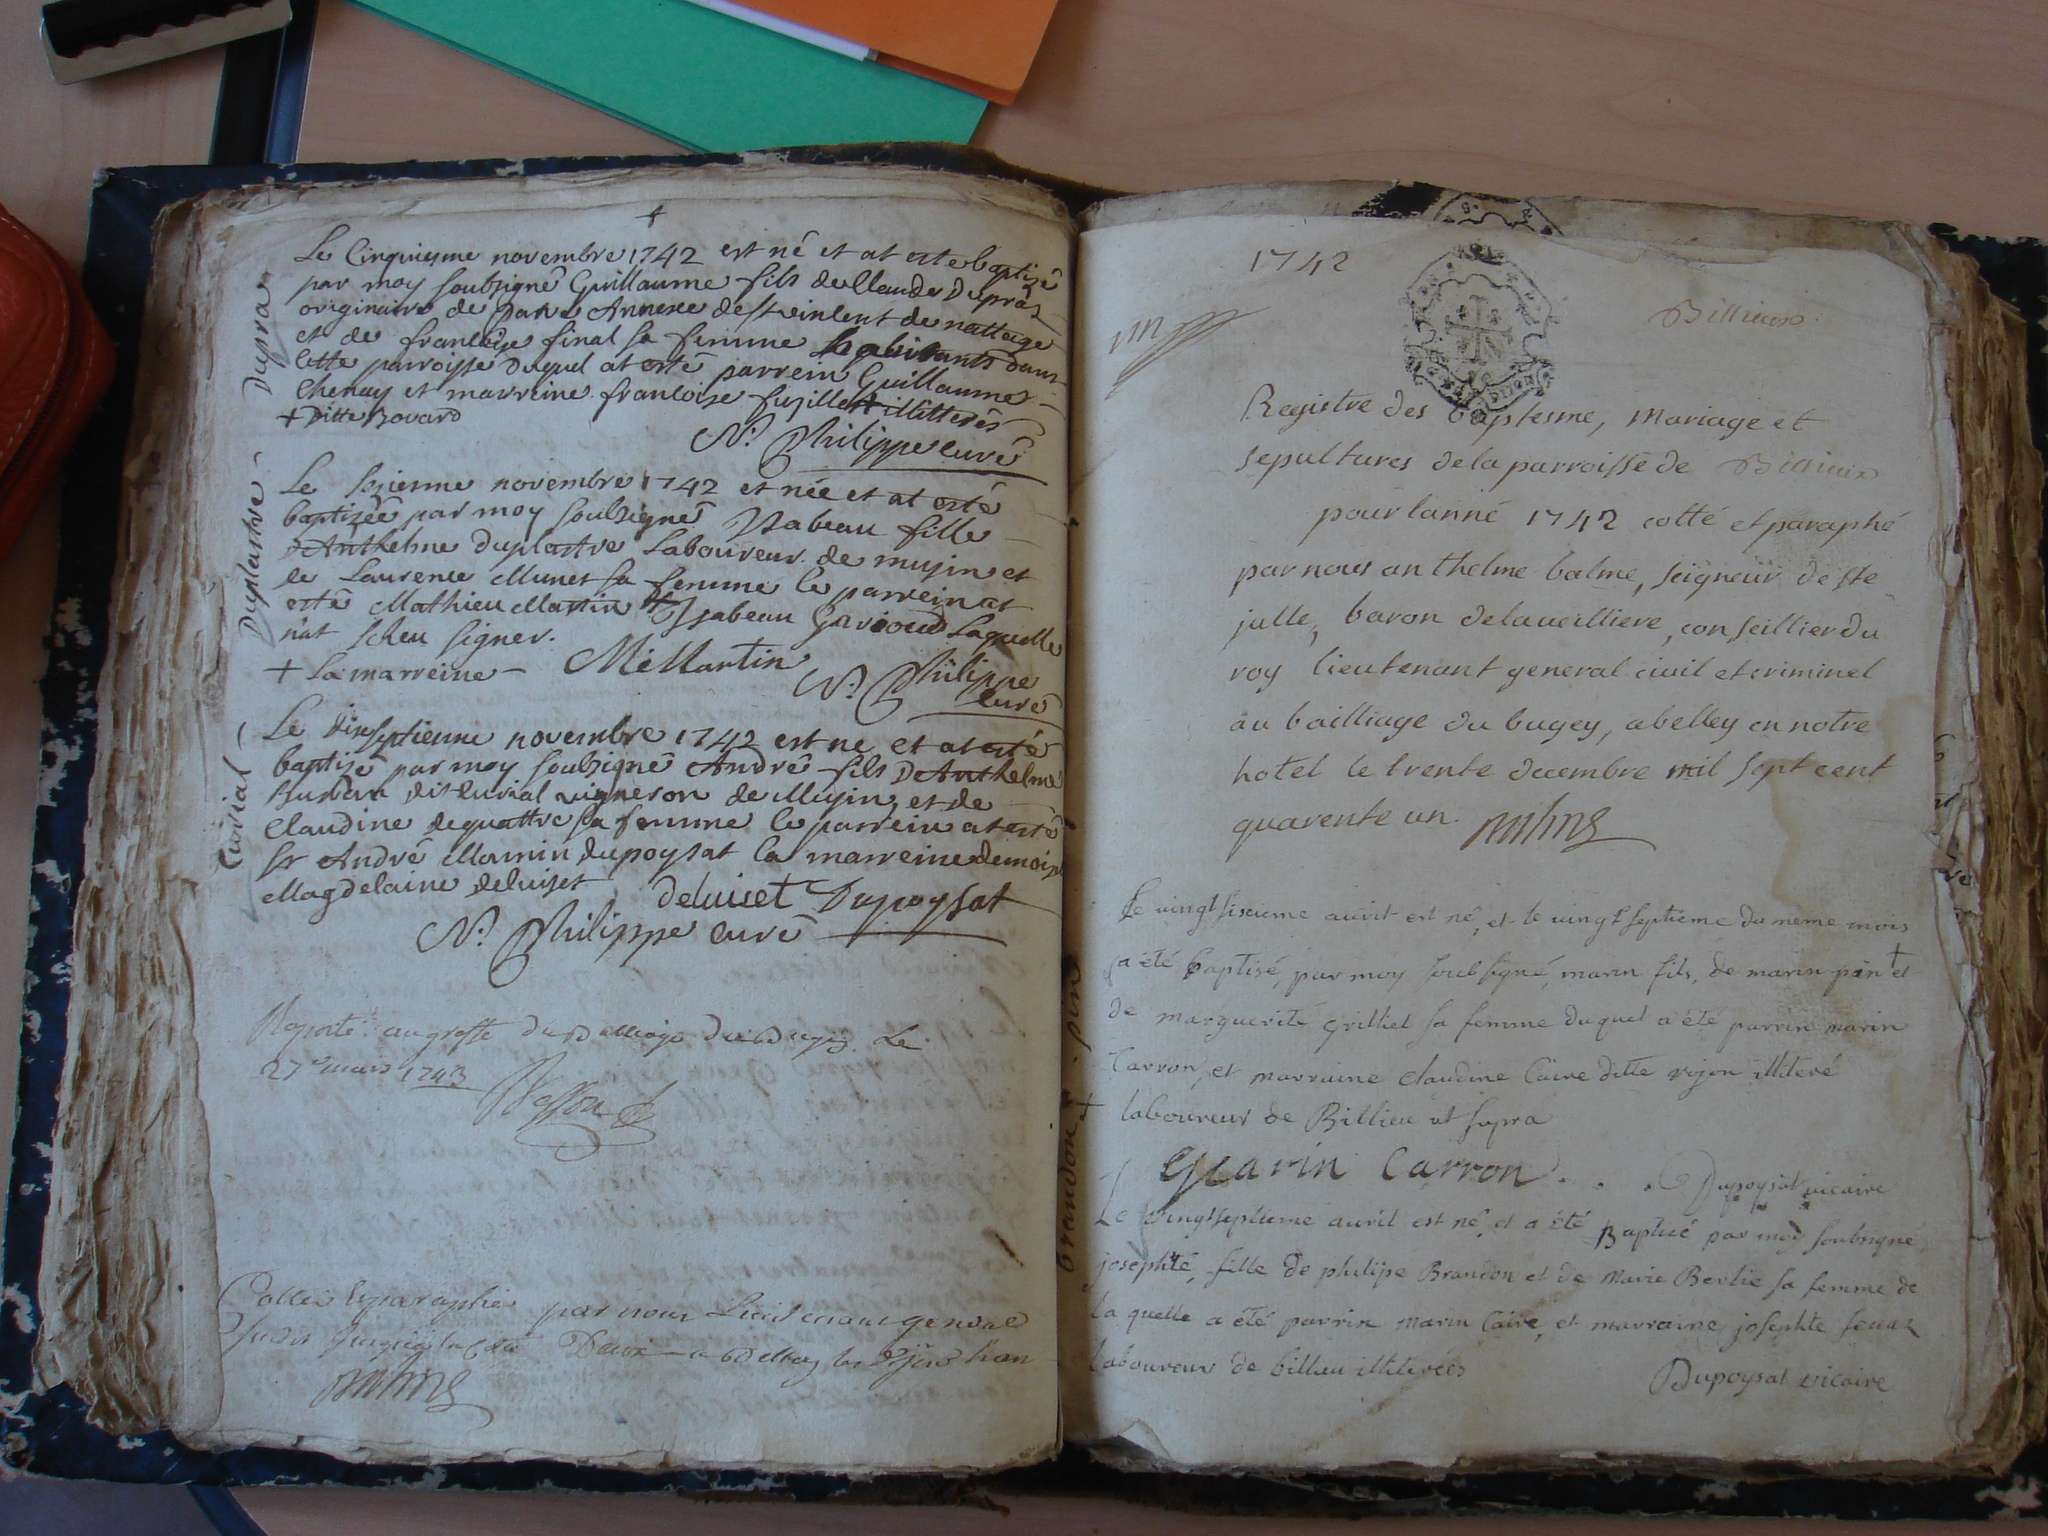 Dupra
Le Cinquiesme novembre 1742 est né et at este baptizé
par moy soubsigné Guillaume fils de Claude Dupraz
originaire de Annexe de de nattage
et de francoise final sa femme habitants dans
cette parroisse duquel at esté parrein Guillaume
Chenay et marreine francoise illitterés
+ ditte Bovard
N. Philippe curé
Duplastre
Le seziesme novembre 1742 et née et at esté
baptizée par moy soubsigné Isabeau fille
d'Anthelme Duplastre Laboureur de musin et
de Laurence Munet sa femme le parrein at
esté Mathieu Martin + Isabeau Gavioud Laquelle
n'at sceu signer.
+ La marreine - M Martin
N. Philippe
curé
Curial
Le dixseptienne novembre 1742 est ne et at esté
baptizé par moy soubsigné André fils D'Anthelme
dit Curial vigneron de Musin et de
Claudine dequattre sa femme le parrein at esté
sr André Marin dupoysat la marreine demois
Magdelaine deluiset deluiset Dupoysat
N. Philippe curé
au greffe du Balliage du Bugey Le
27e mars 1743
par nous Lieutenant general
1742
Billieux
Registre des Baptesme, Mariage et
sepultures de la parroisse de Billieux
pour lanné 1742 cotté et paraphé
par nous anthelme balme, seigneur de ste
julle, baron de laveilliere, conseillier du
roy lieutenant general civil et criminel
au bailliage du bugey, a belley en notre
hotel le trente decembre mil sept cent
quarente un.
Le vingtsixieme avrit est né, et le vingtseptieme du meme mois
a été baptisé, par moy soubsigné, marin fils, de marin pin + et
de marguerite Grilliet sa femme duquel a été parrin marin
Carron, et marraine claudine Caire ditte illiteré
+ laboureur de Billieu ut supra
Marin Carron . . . Dupoysat vicaire
brandon pin
Le vingtseptieme avril est né, et a été Baptisé par moy soubsigné
josephte, fille de philipe Brandon et de Marie Berlie sa femme de
la quelle a été parrin Marin Caire, et marraine josephte
laboureur de billieu illiterées
Dupoysat vicaire